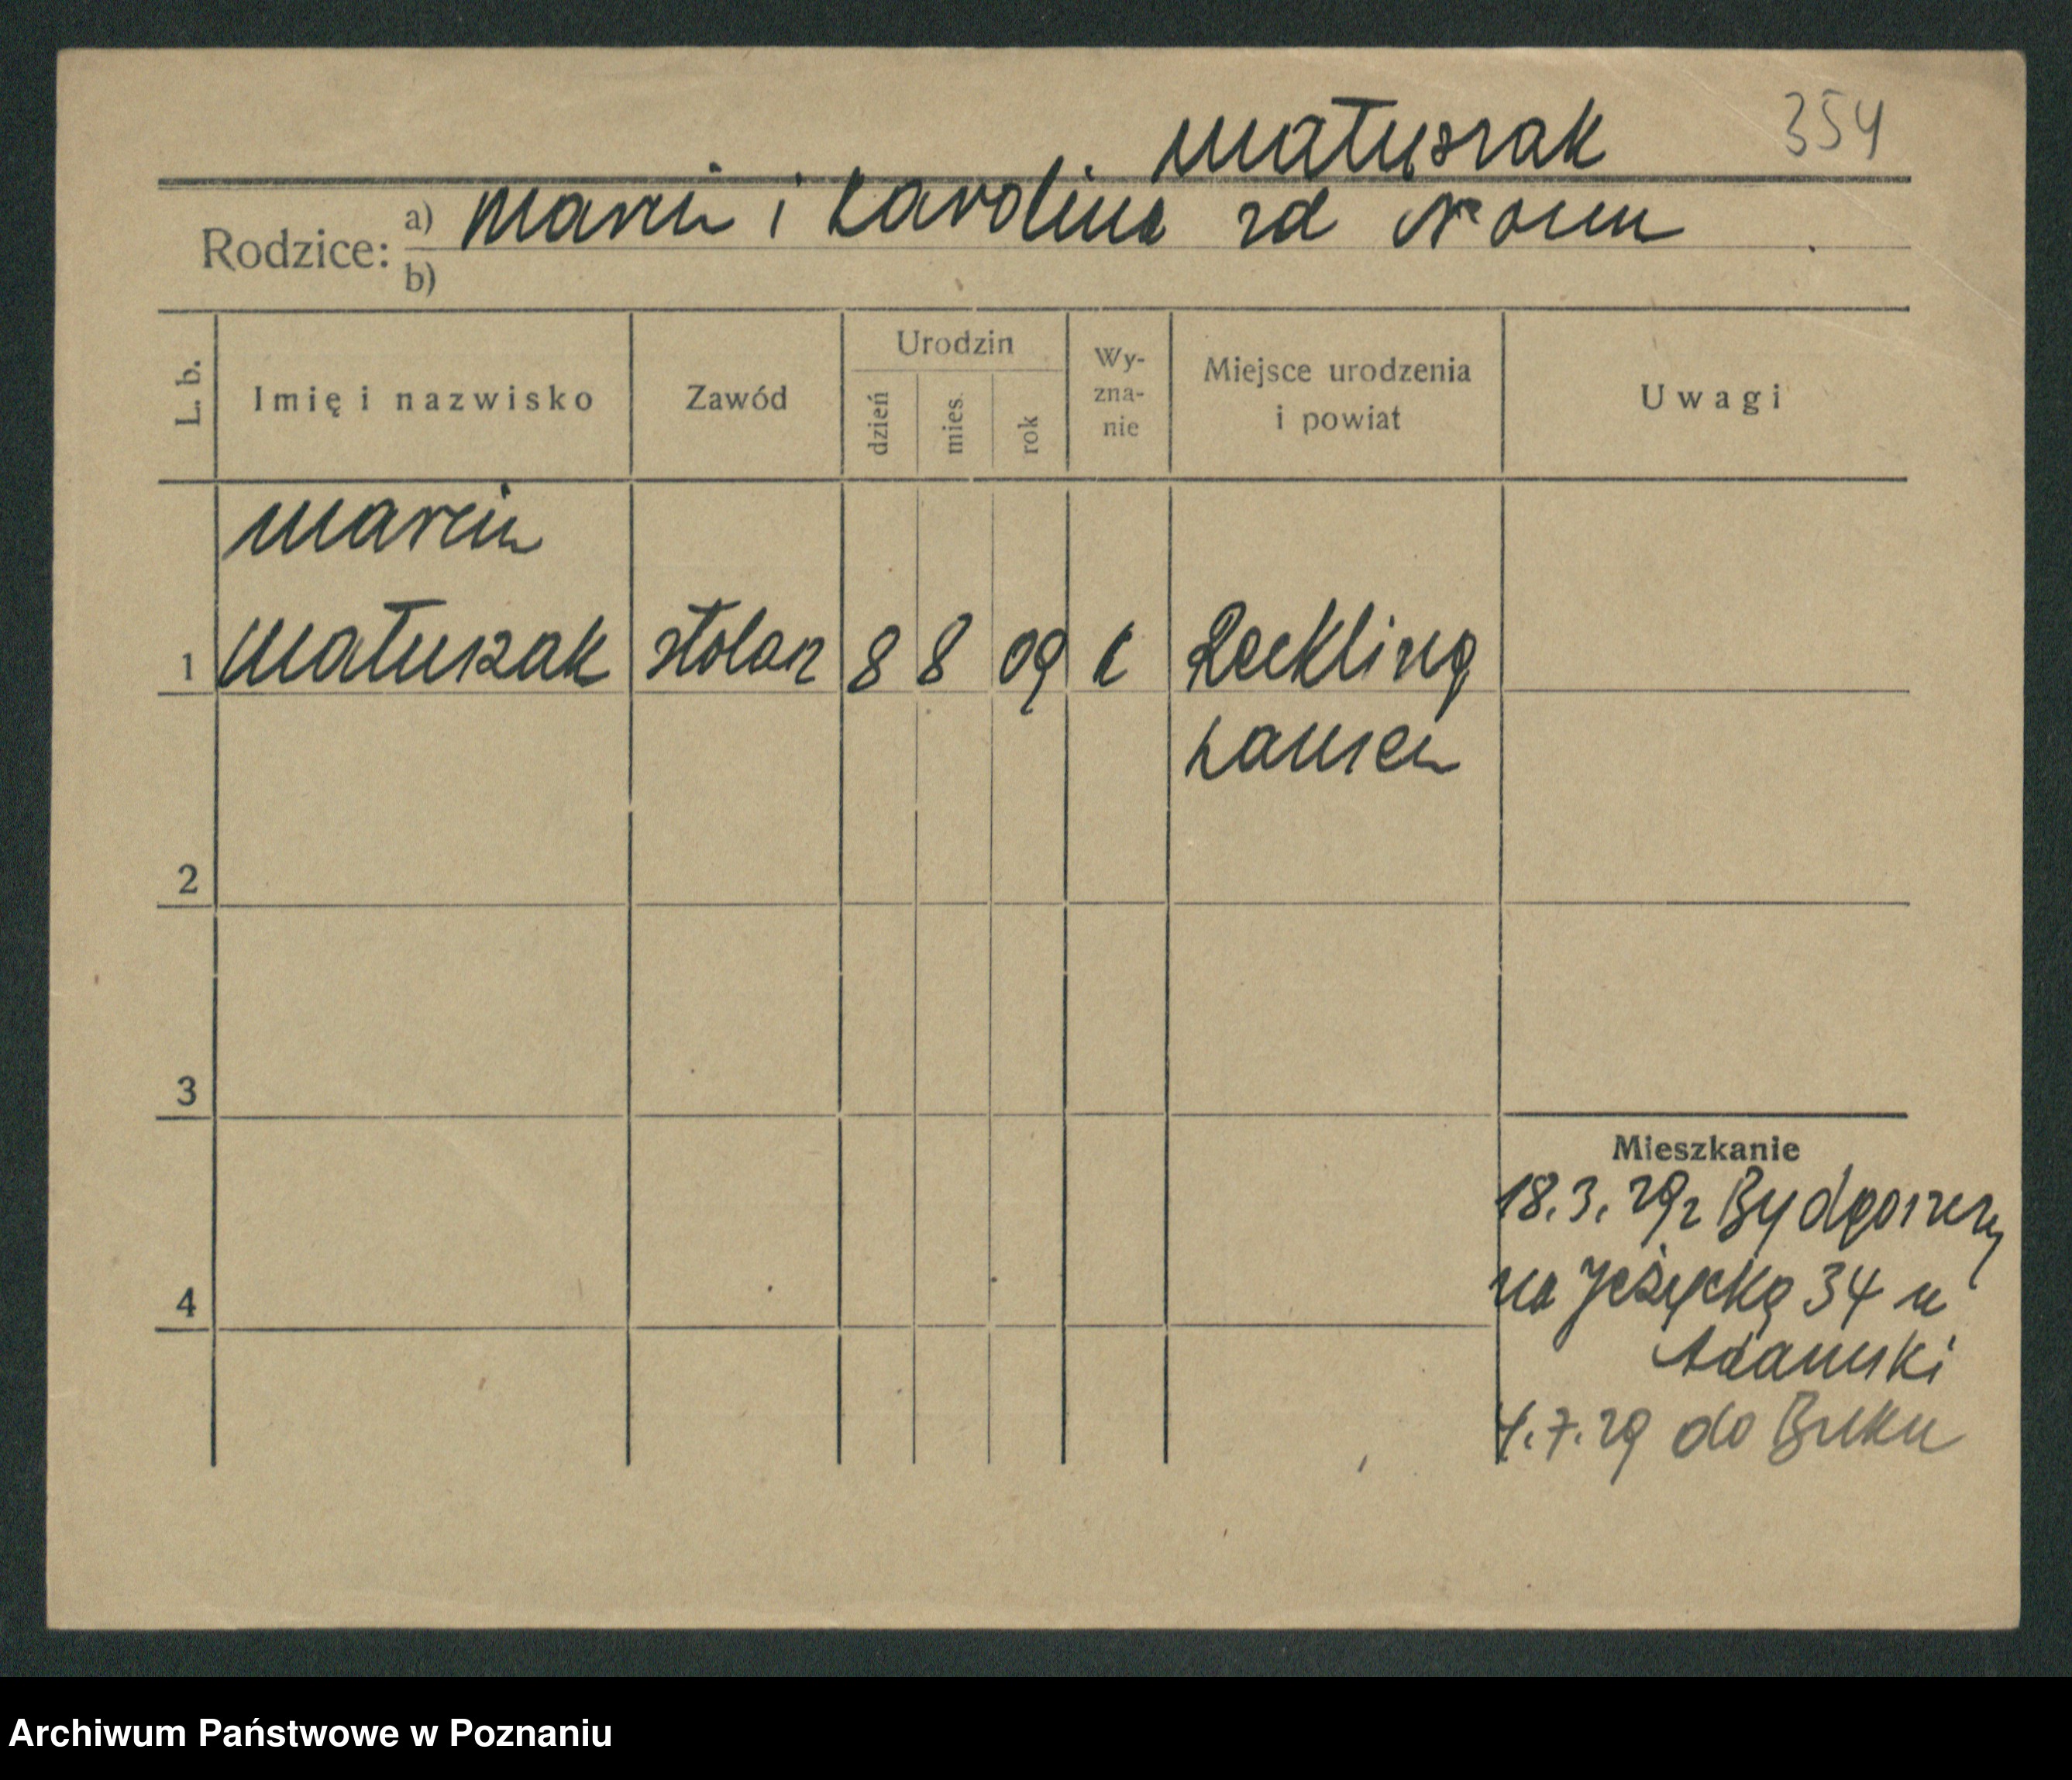 Matuszak 354
Rodzice: a) Marcin i Karolina zd
b)
L. b. Imię i nazwisko Zawód Urodzin dzień mies. rok Wy-zna-nie Miejsce urodzenia i powiat Uwagi
Marcin
1 Matuszak stolarz 8 8 09 k Reckling
hausen
2
3
Mieszkanie
18.3.29 z Bydgoszczy
4 na Jeżycką 34 u
Adamski
4.7.29 do Buku
Archiwum Państwowe w Poznaniu